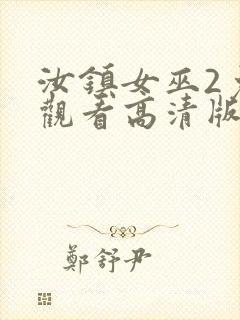 汝鎮女巫2
觀看高清版
鄭舒尹